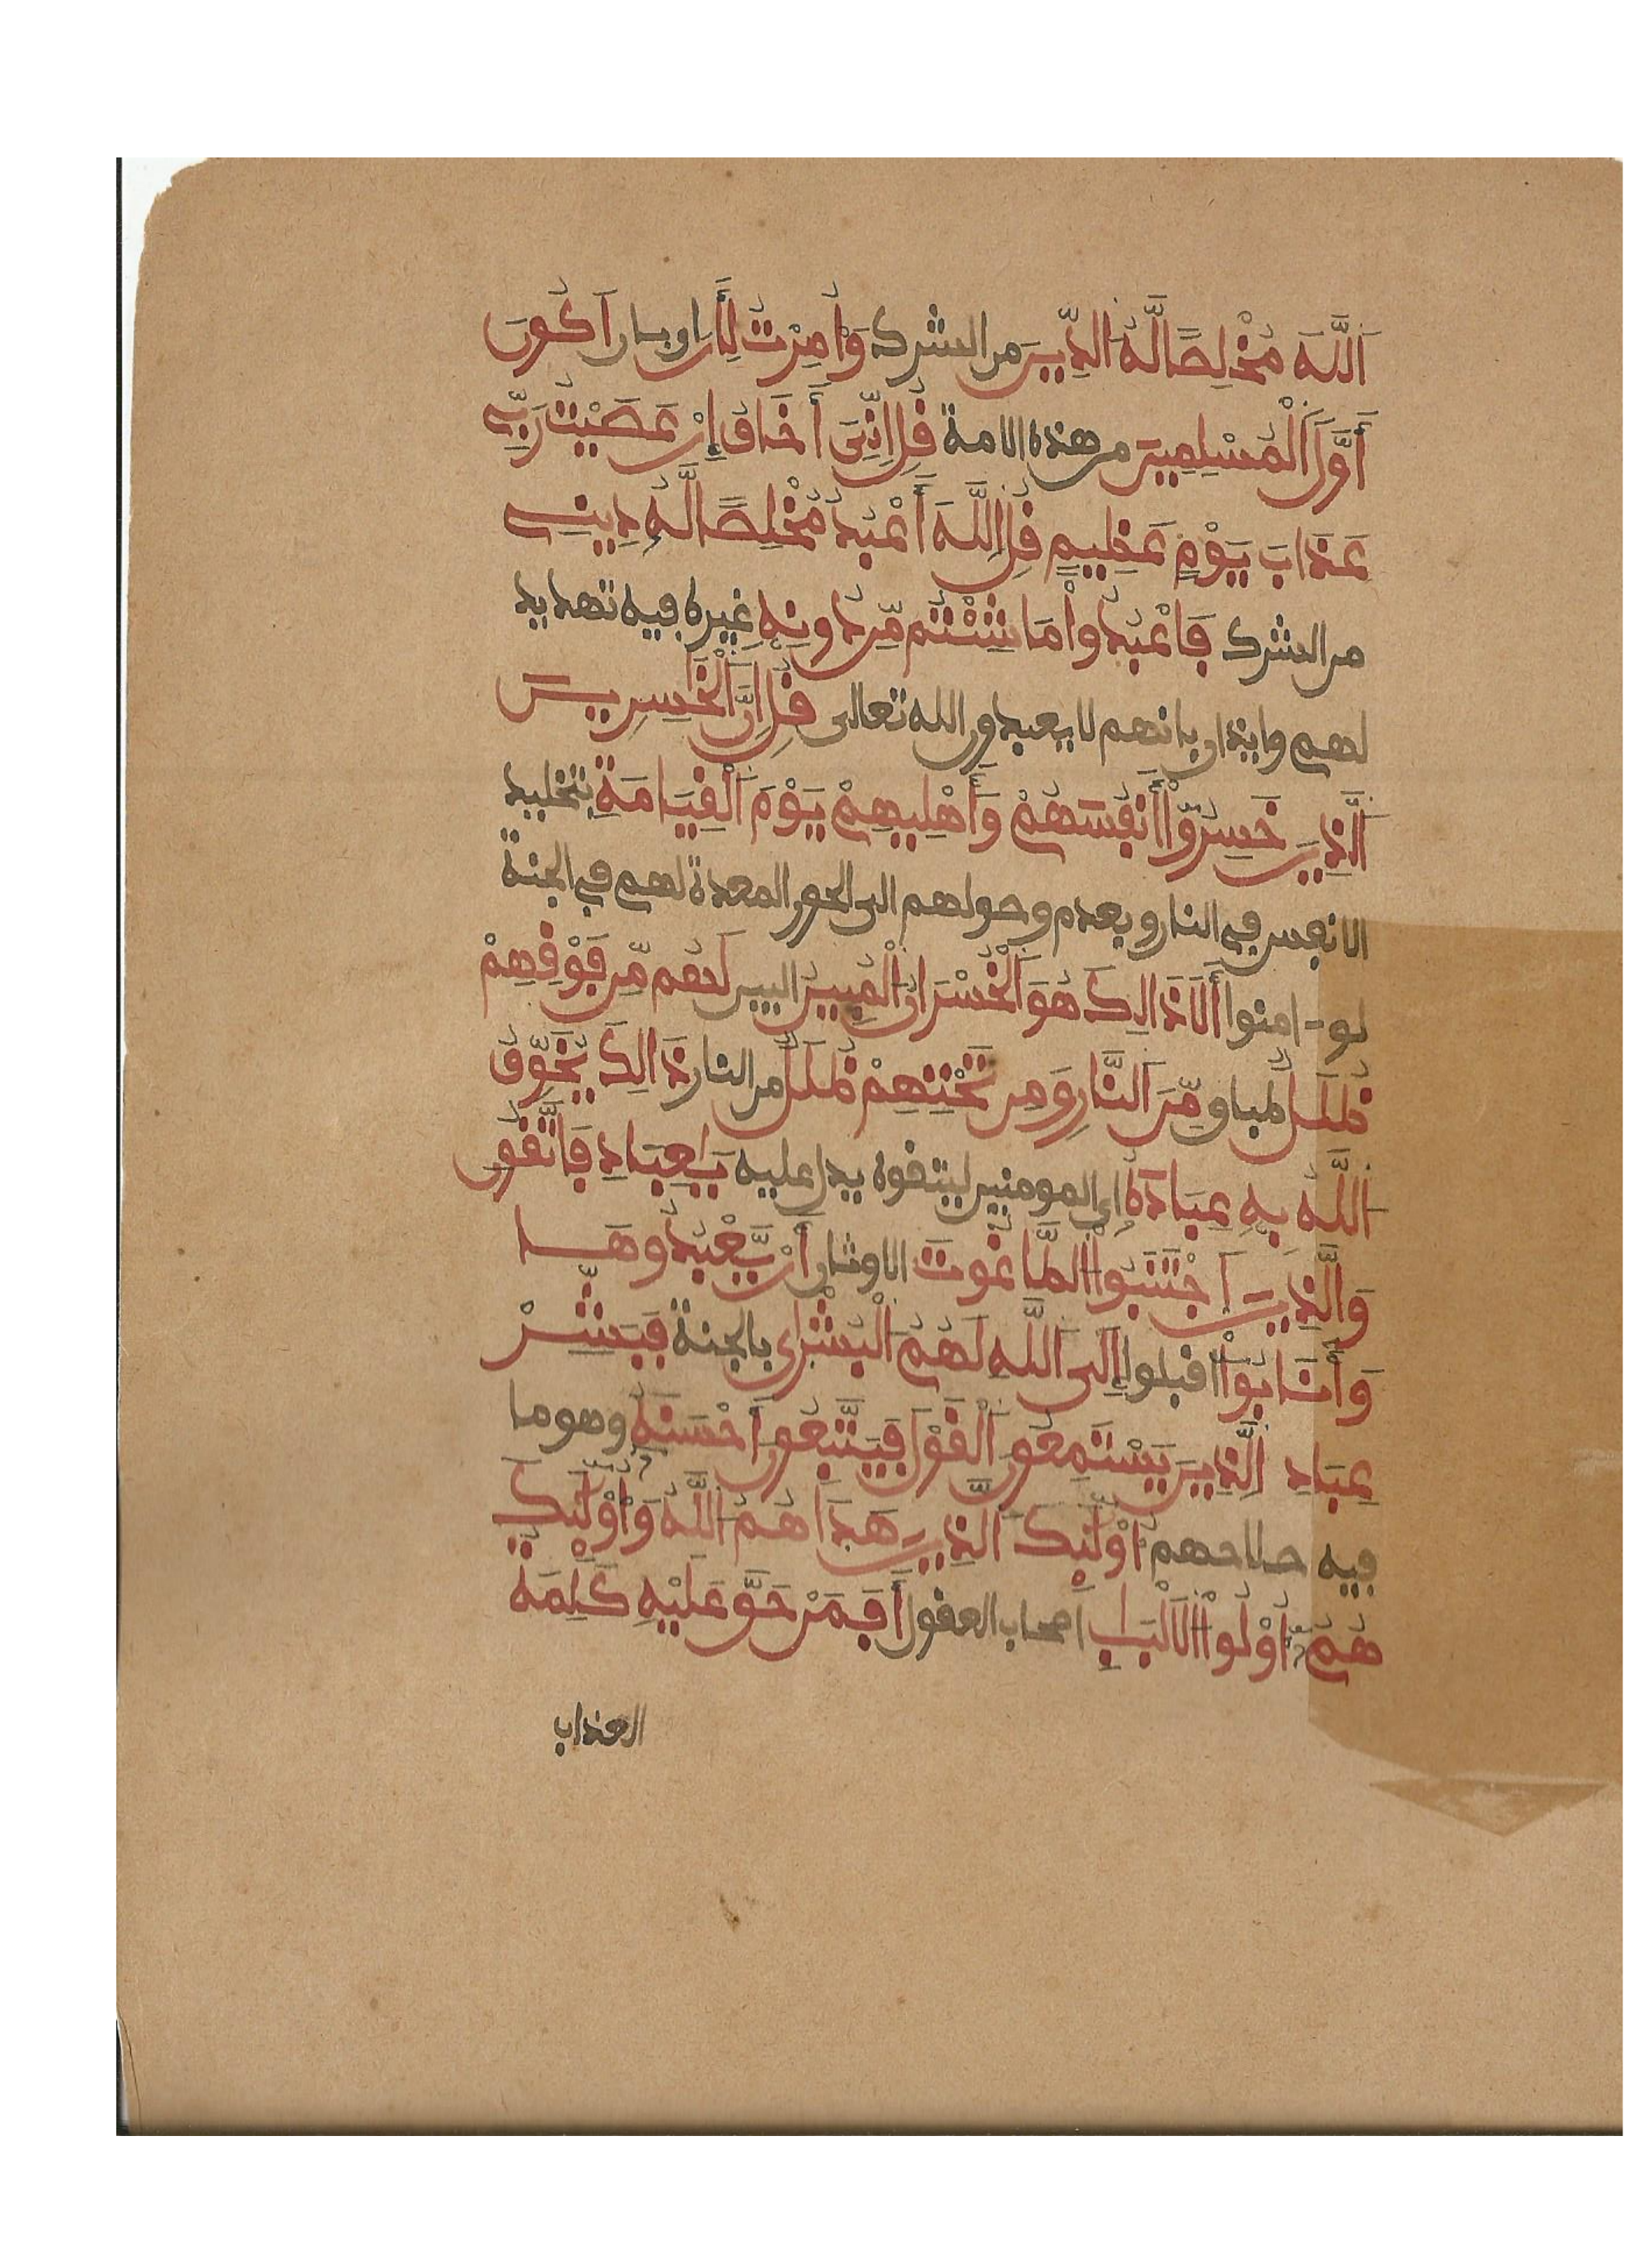 اَللَّهَ مُخْلِصًا لَّهُ الدِّينَ من الشرك وَأُمِرْتُ لِأَنْ اي بان أَكُونَ
أَوَّلَ اَلْمُسْلِمِينَ من هذه الامة قُلْ إِنِّيَ أَخَافُ إِنْ عَصَيْتُ رَبِّي
عَذَابَ يَوْمٍ عَظِيمٍ قُلِ اِللَّهَ أَعْبُدُ مُخْلِصًا لَّهُ دِينِي
من الشرك فَاعْبُدُواْ مَا شِئْتُم مِّن دُونِهِ غيره فيه تهديد
لهم وايذان بانهم لا يعبدون الله تعالى قُلِ اِنَّ اَلْخَسِرِينَ
اَلَّذِينَ خَسِرُواْ أَنفُسَهُمْ وَأَهْلِيهِمْ يَوْمَ اَلْقِيَامَةِ بتخليد
الانفس في النار وبعدم وصولهم الى الحور المعدة لهم في الجنة
لو -امنوا أَلَا ذَالِكَ هُوَ اَلْخُسْرَانُ اُلْمُبِينُ البين لَهُم مِّن فَوْقِهِمْ
ظُلَلٌ طباق مِّنَ اَلنَّارِ وَمِن تَحْتِهِمْ ظُلَلٌ من النار ذَالِكَ يُخَوِّفُ
اُللَّهُ بِهِ عِبَادَهُ اي المومنين ليتقوه يدل عليه يَاعِبَادِ فَاتَّقُونِ
وَالَّذِينَ اَجْتَنَبُواْ اُلطَّاغُوتَ الاوثان أَنْ يَّعْبُدُوهَا
وَأَنَابُواْ اقبلوا إِلَى اَللَّهِ لَهُمُ اُلْبُشْرَى بالجنة فَبَشِّرْ
عِبَادِ اِلَّذِينَ يَسْتَمِعُونَ اَلْقَوْلَ فَيَتَّبِعُونَ أَحْسَنَهُ وهو ما
فيه صلاحهم أُوْلَئِكَ اَلَّذِينَ هَدَاهُمُ اُللَّهُ وَأُوْلَئِكَ
هُمُ أُوْلُواْ اُلَالْبَابِ اصحاب العقول أَفَمَنْ حَقَّ عَلَيْهِ كَلِمَةُ
العذاب